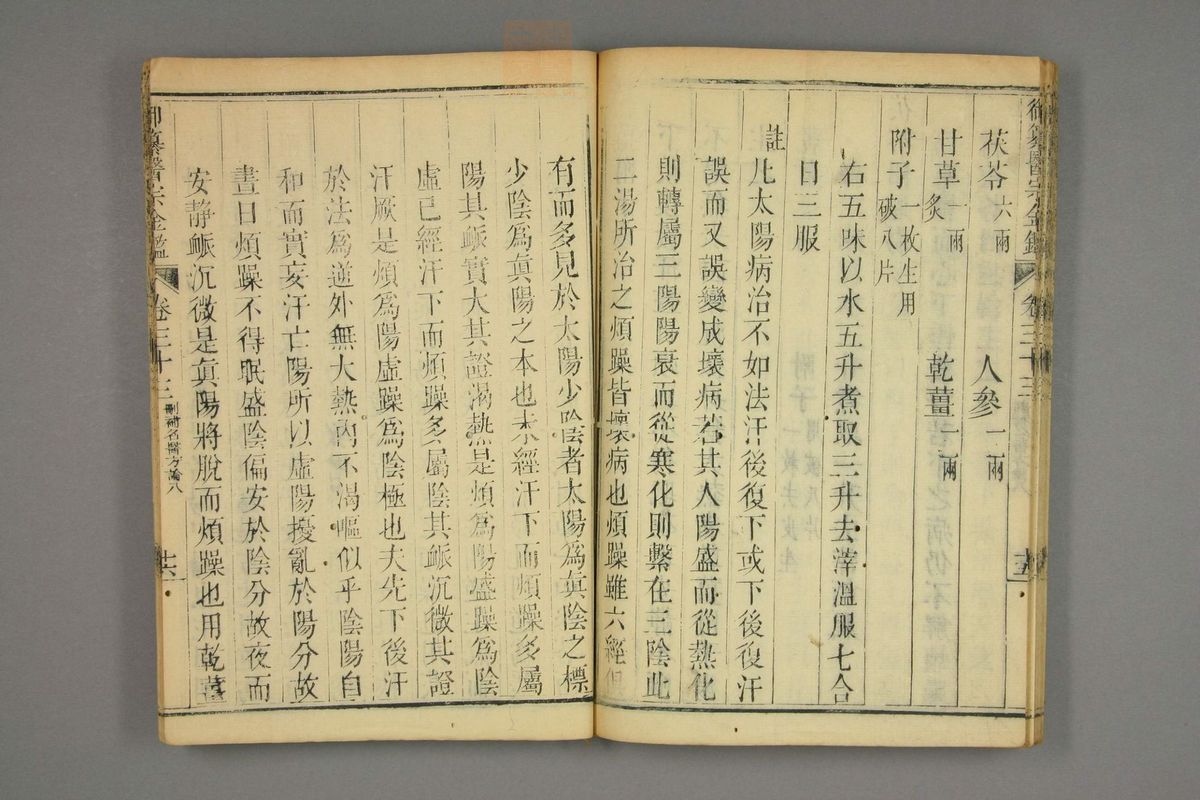 茯苓六兩　人參一兩
甘草炙一兩　乾薑一兩
附子一枚生用破八片
右五味以水五升煮取三升去滓溫服七合
日三服
註　凡太陽病治不如法汗後復下或下後復汗
誤而又誤變成壞病若其人陽盛而從熱化
則轉屬三陽陽衰而從寒化則繫在三陰此
二湯所治之煩躁皆壞病也煩躁雖六經俱
有而多見於太陽少陰者太陽為眞陰之標
少陰為眞陽之本也未經汗下而煩躁多屬
陽其脈實大其證渴熱是煩為陽盛躁為陰
虛已經汗下而煩躁多屬陰其脈沉微其證
汗厥是煩為陽虛躁為陰極也夫先下後汗
於法為逆外無大熱內不渴嘔似乎陰陽自
和而實妄汗亡陽所以虛陽擾亂於陽分故
晝日煩躁不得眠盛陰偏安於陰分故夜而
安靜脈沉微是眞陽將脫而煩躁也用乾薑
御纂醫宗金鑑　卷三十三　刪補名醫方論八　十六